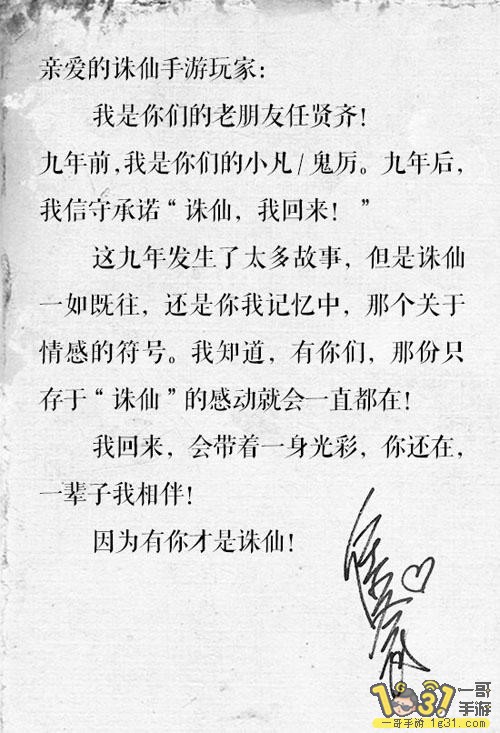 亲爱的诛仙手游玩家：
我是你们的老朋友任贤齐！
九年前，我是你们的小凡/鬼厉。九年后，
我信守承诺“诛仙，我回来！”
这九年发生了太多故事，但是诛仙
一如既往，还是你我记忆中，那个关于
情感的符号。我知道，有你们，那份只
存于“诛仙”的感动就会一直都在！
我回来，会带着一身光彩，你还在，
一辈子我相伴！
因为有你才是诛仙！
任贤齐
1g31 一哥
手游
一哥手游 1g31.com